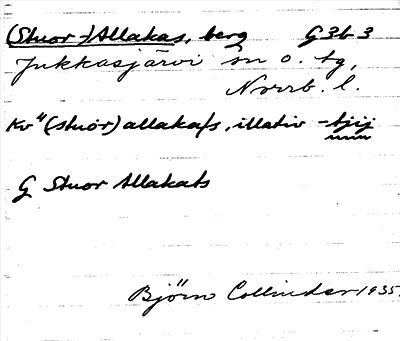 (Stuor-)Allakas, berg G3b3
Jukkasjärvi sn o. tg,
Norrb. l.
Kv" (stuor) allakas, illativ -tjij
G Stuor Allakats
Björn Collinder 1935.